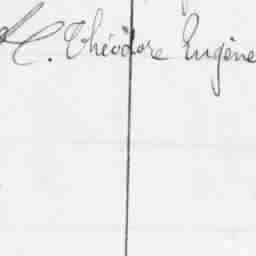 C. Théodore Eugène